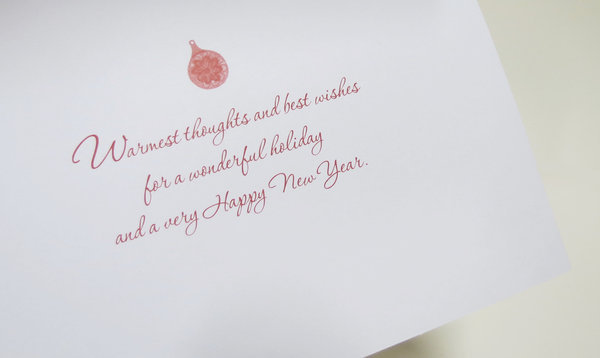 Warmest thoughts and best wishes
for a wonderful holiday
and a very Happy New Year.